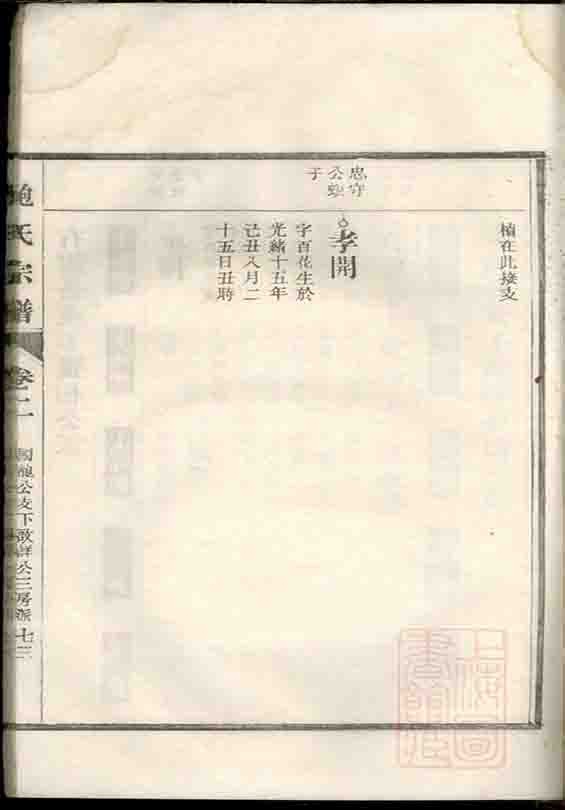 植在此接支
忠守
公螟
于
孝開
字百花生於
光緒十五年
己丑八月二
十五日丑時
鮑氏宗譜
卷十二
公支下啟祥公三房派
七三
上海圖
書館藏